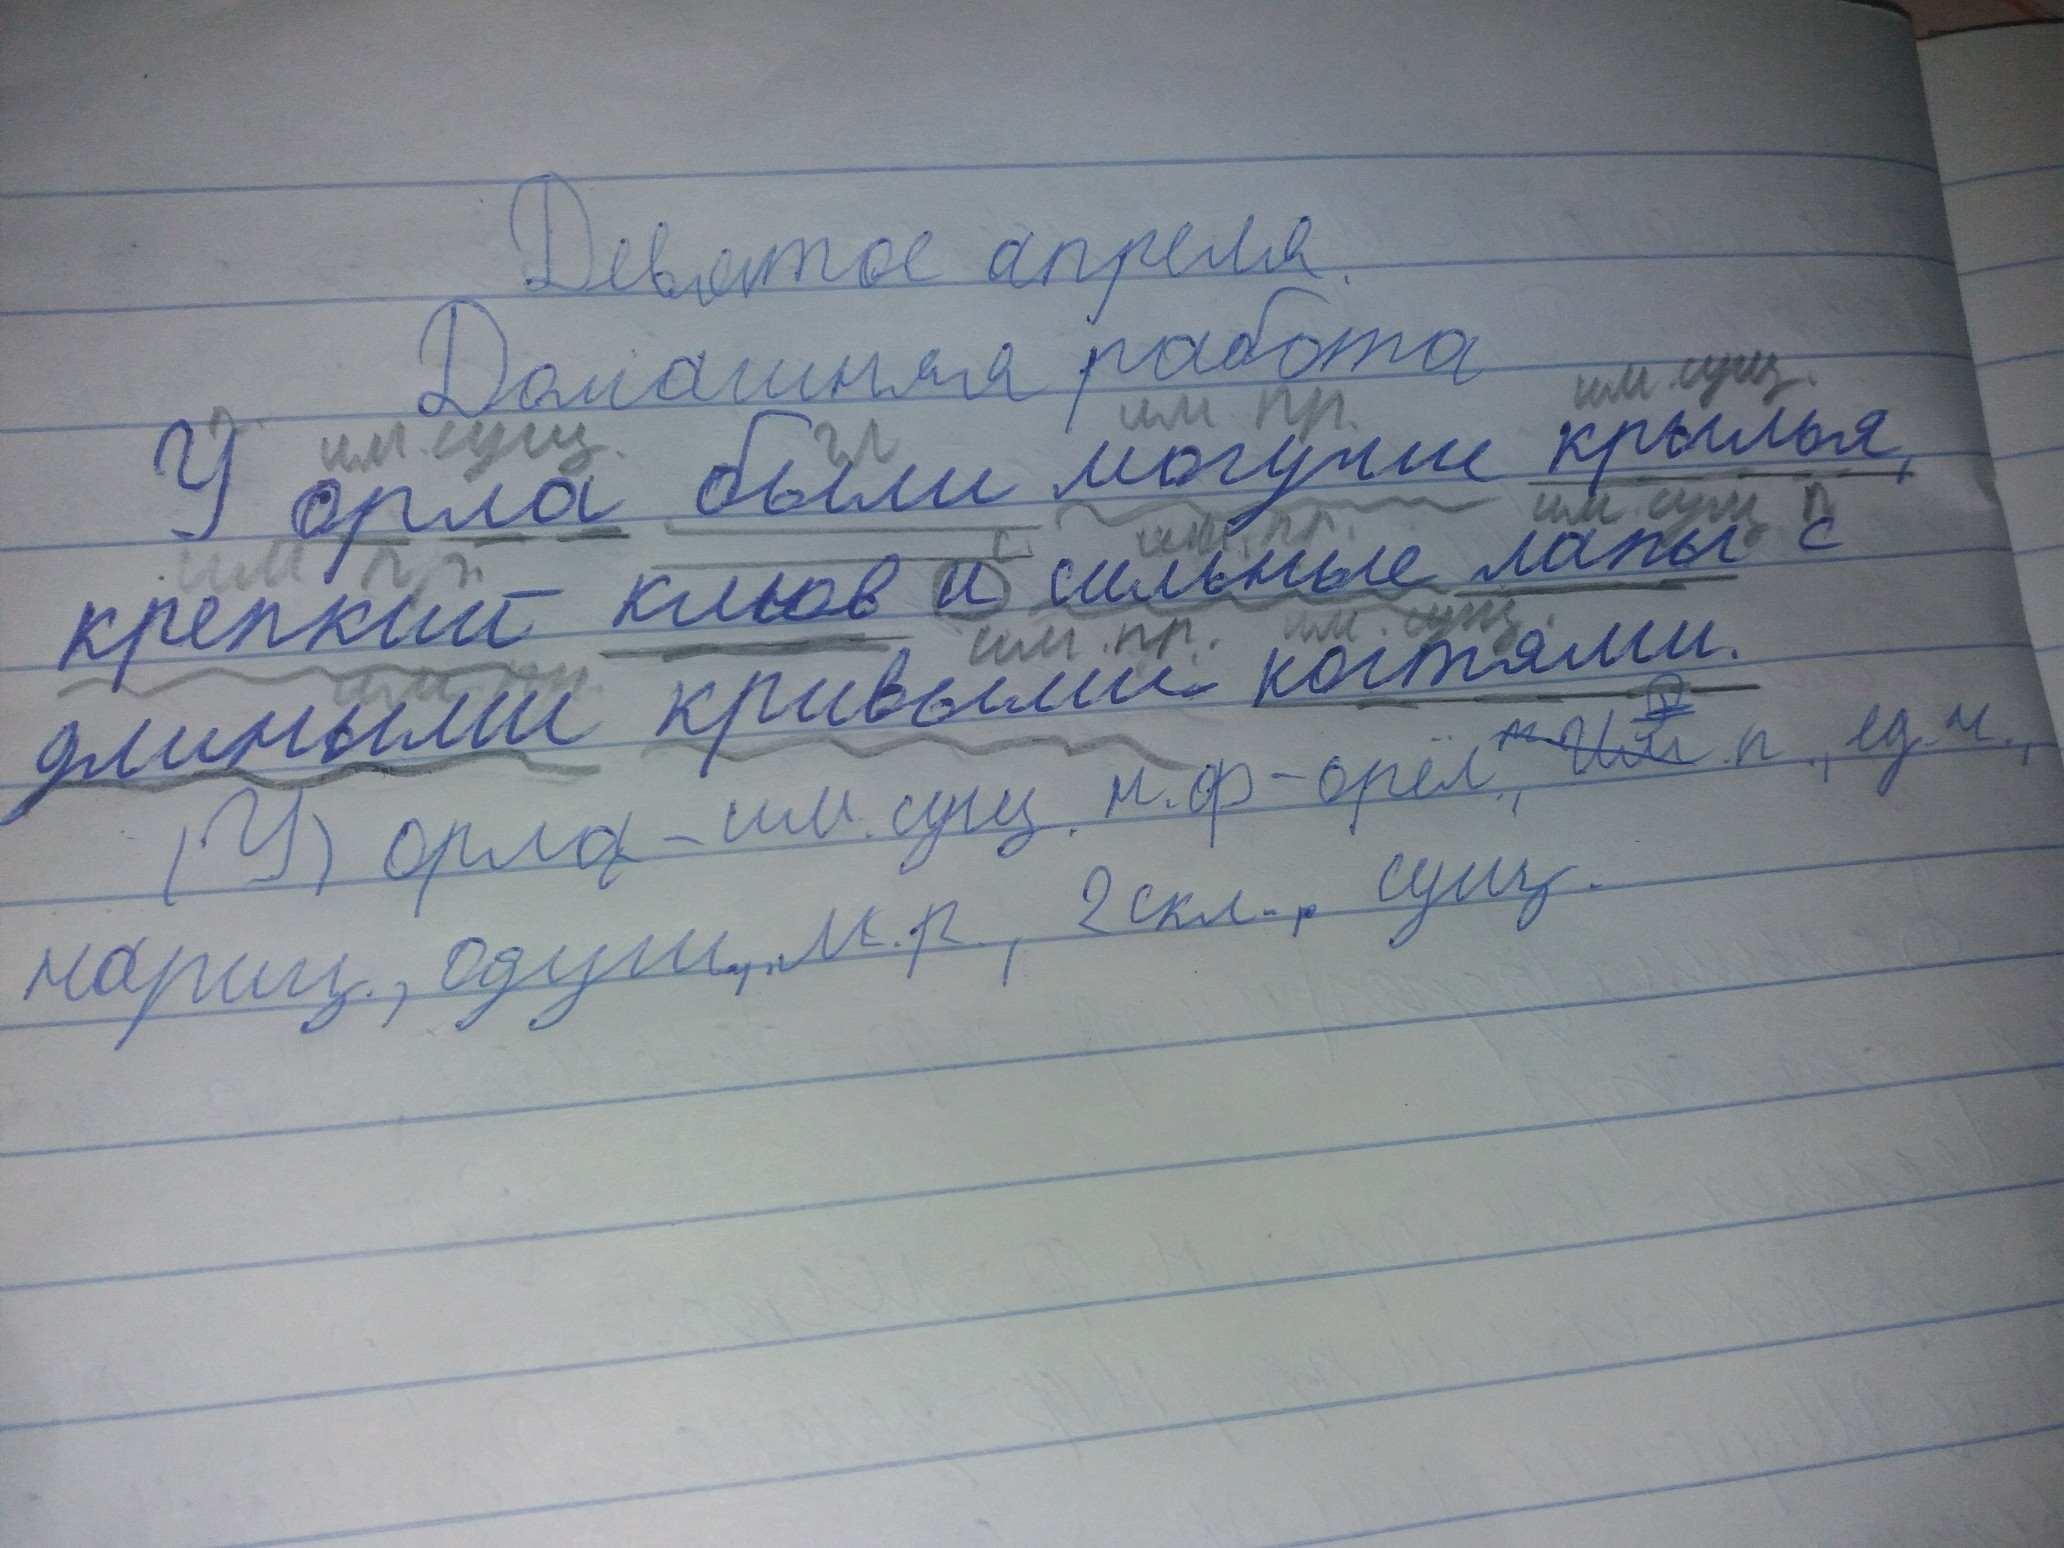 Девятое апреля.
Домашняя работа
им. сущ. гл им пр. им. сущ.
У орла были могучие крылья,
им п.п. с. им. пр. им. сущ п
крепкий клюв и сильные лапы с
им. пр. им. пр. им. сущ.
длиными кривыми когтями.
(У) орла - им. сущ. н.ф - орёл, .п., ед.ч.,
нариц., одуш., м.р., 2 скл., сущ.